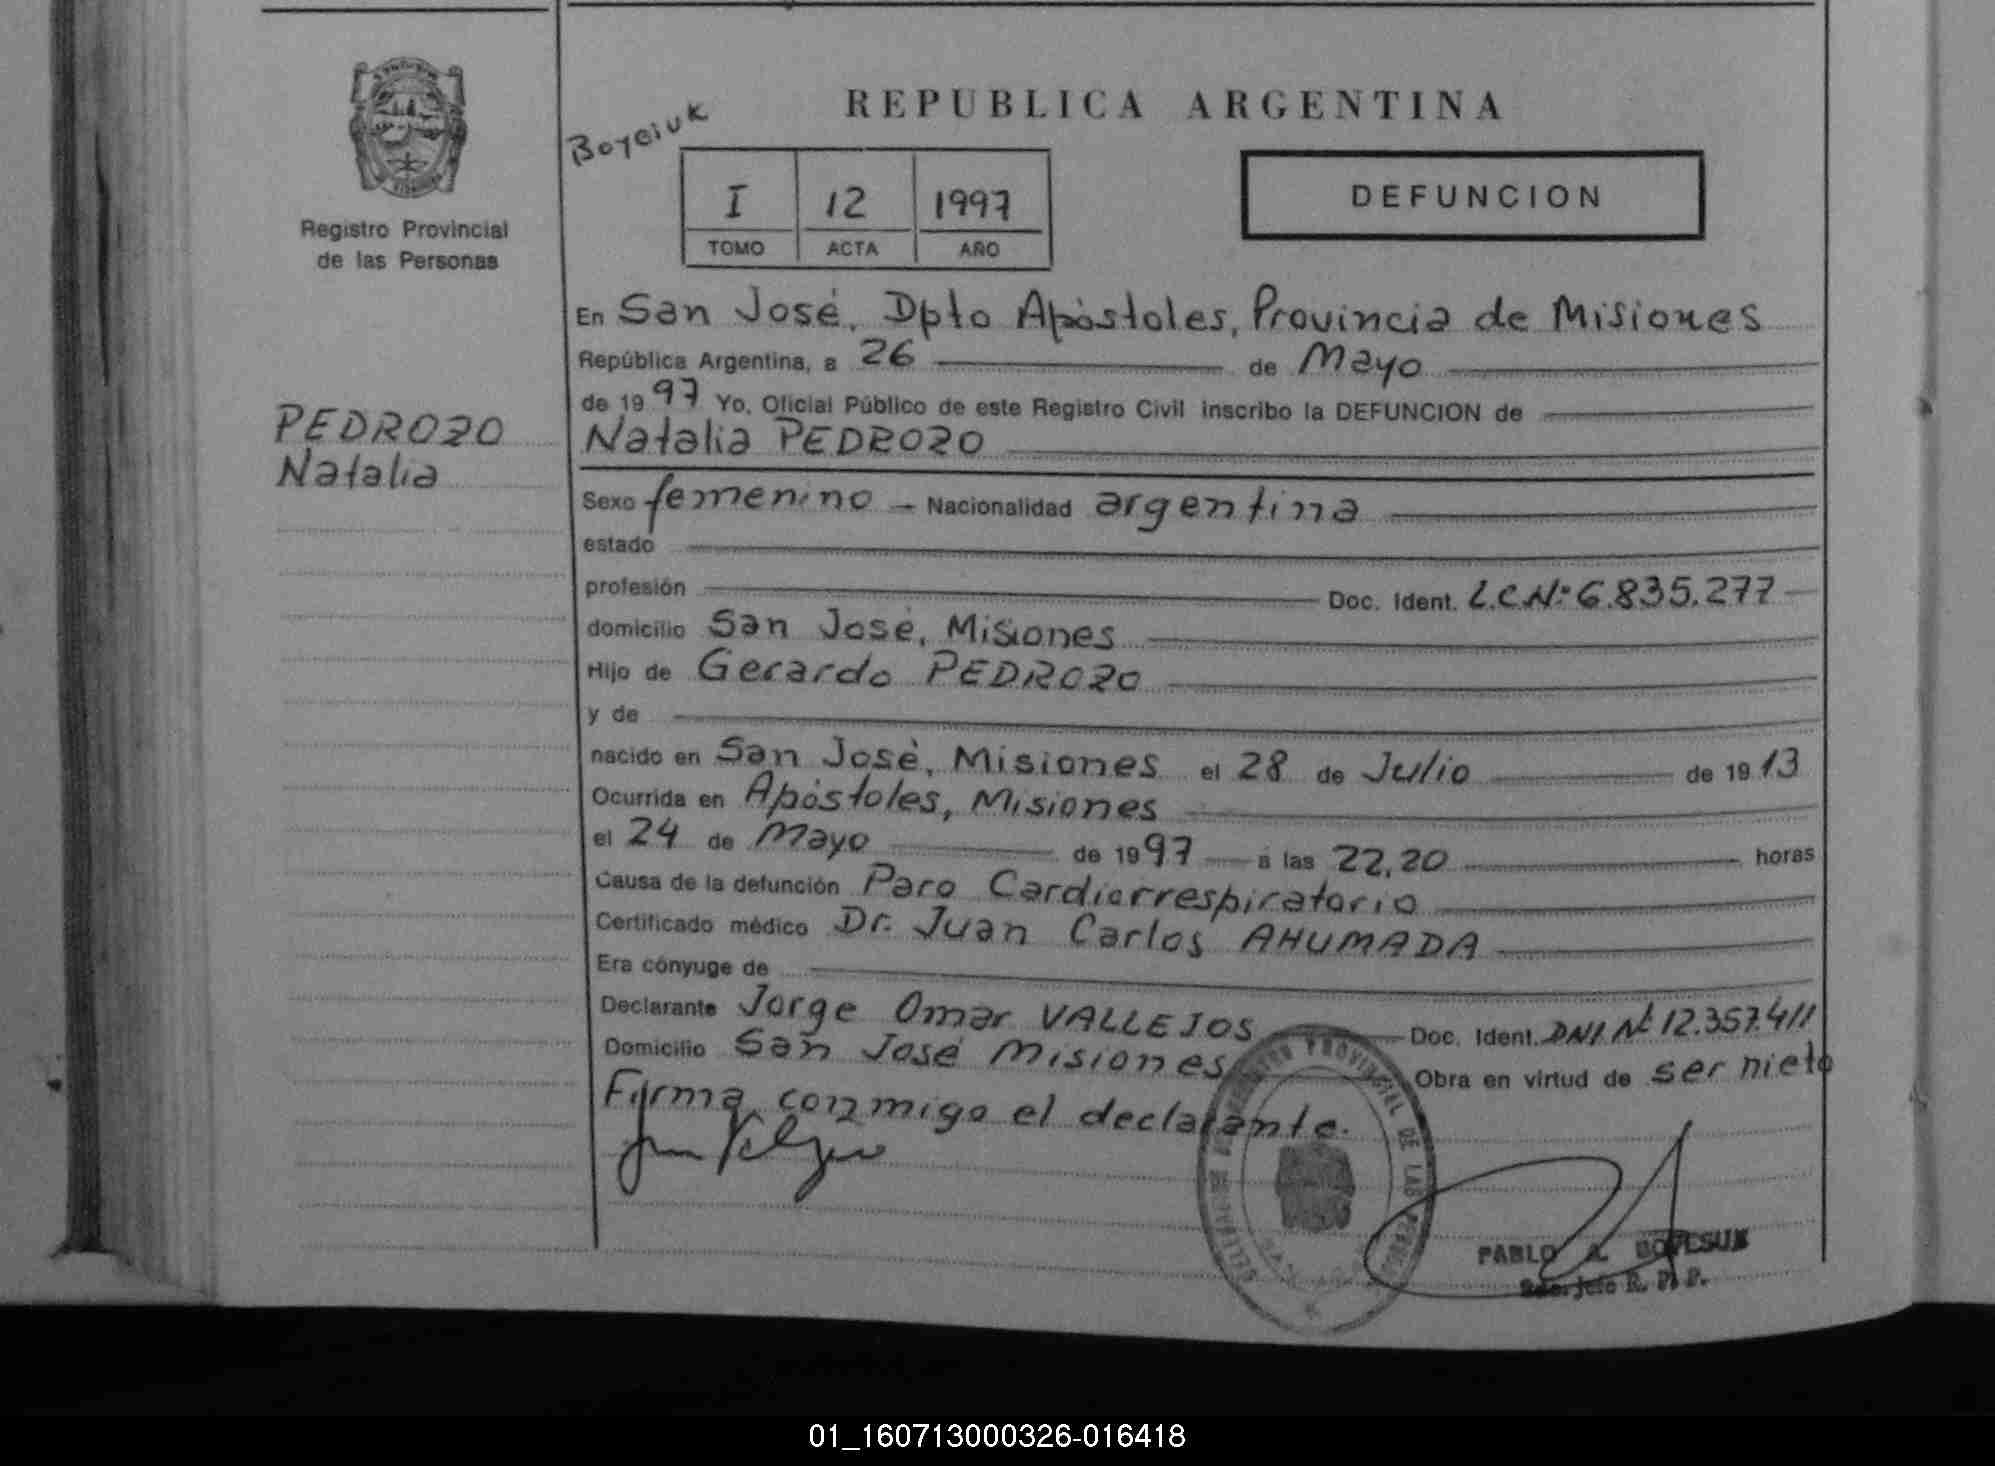 REPUBLICA ARGENTINA
Boyciuk
I 12 1997
TOMO ACTA AÑO
DEFUNCION
Registro Provincial
de las Personas
PEDROZO
Natalia
En San José, Dpto Apóstoles, Provincia de Misiones
República Argentina, a 26 de Mayo
de 1997 Yo, Oficial Público de este Registro Civil inscribo la DEFUNCION de
Natalia PEDROZO
Sexo femenino - Nacionalidad argentina
estado
profesión Doc. Ident. L.C.Nº 6.835.277
domicilio San José, Misiones
Hijo de Gerardo PEDROZO
y de
nacido en San José, Misiones el 28 de Julio de 1913
Ocurrida en Apóstoles, Misiones
el 24 de Mayo de 1997 a las 22,20 horas
Causa de la defunción Paro Cardiorrespiratorio
Certificado médico Dr. Juan Carlos AHUMADA
Era cónyuge de
Declarante Jorge Omar VALLEJOS Doc. Ident. DNI Nº 12.357.411
Domicilio San José Misiones Obra en virtud de ser nieto
Firma conmigo el declarante.
PROVINCIAL DE LAS
PABLO A.
R. P. P.
01_160713000326-016418